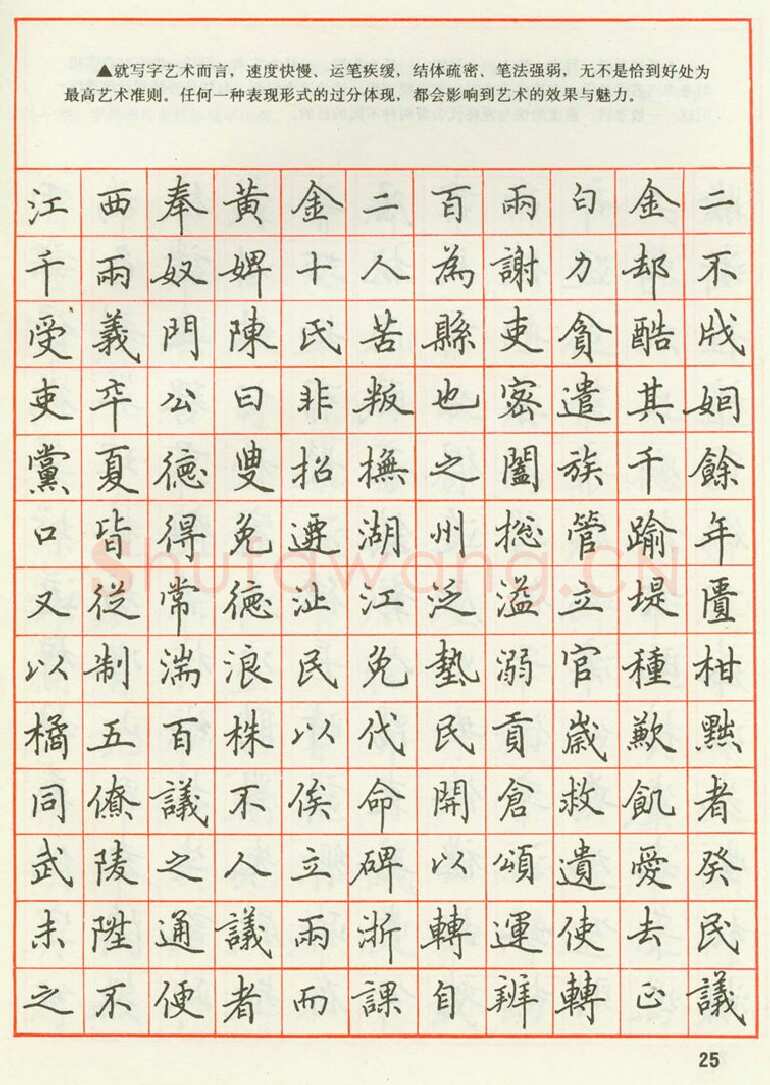 ▲就写字艺术而言，速度快慢、运笔疾缓，结体疏密、笔法强弱，无不是恰到好处为
最高艺术准则。任何一种表现形式的过分体现，都会影响到艺术的效果与魅力。
江西奉黄金二百兩白金二
千兩奴婢十人為謝力却不
受義門陳氏苦縣吏貪酷戕
吏卒公曰非叛也密遣其姻
黨夏德叟招撫之闔族千餘
口皆得免遷湖州總管踰年
又從常德沚江泛溢立堤匱
以制湍浪民免墊溺官種柑
橘五百株以代民貢歲歉黜
同僚議不俟命開倉救飢者
武陵之人立碑以頌遺愛癸
未陞通議兩浙轉運使去民
之不便者而課自辦轉正議
Shufawang.CN
25